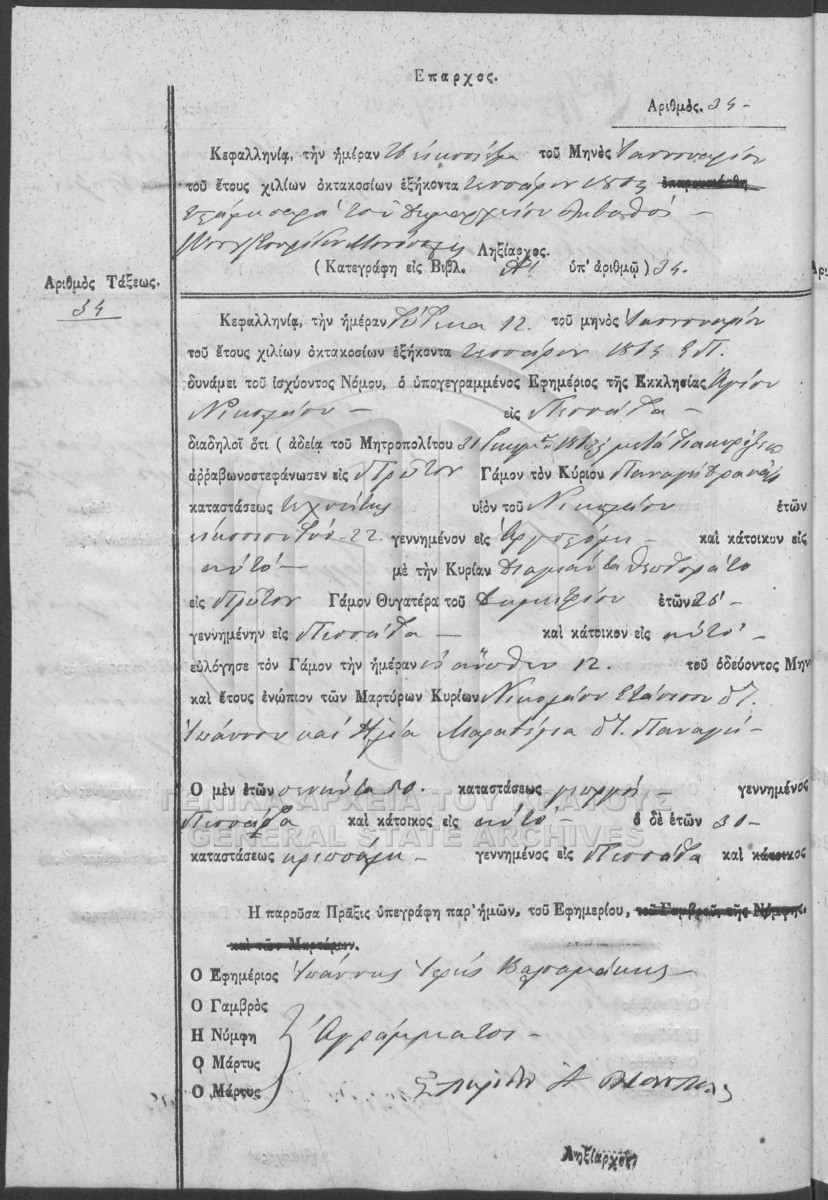 Επαρχος.
Αριθμὸς. 34
Κεφαλληνίᾳ, τὴν ἡμέραν τοῦ Μηνὸς Ἰαννουαρίου
τοῦ ἔτους χιλίων ὀκτακοσίων ἑξήκοντα τεσσάρων 1864 ἐπαρουσιάσθη
τοῦ Δημαρχείου
Ληξίαρχος.
( Κατεγράφη εἰς Βιβλ. Α! ὑπ' ἀριθμῷ ) 34.
Αριθμὸς Τάξεως.
34
Κεφαλληνίᾳ, τὴν ἡμέραν δώδεκα 12. τοῦ μηνὸς Ἰαννουαρίου
τοῦ ἔτους χιλίων ὀκτακοσίων ἑξήκοντα τεσσάρων 1864 Ε.Π.
δυνάμει τοῦ ἰσχύοντος Νόμου, ὁ ὑπογεγραμμένος Ἐφημέριος τῆς Ἐκκλησίας Ἁγίου
Νικολάου εἰς Πεσσάδα
διαδηλοῖ ὅτι ( ἀδείᾳ τοῦ Μητροπολίτου 31 μετὰ
ἀῤῥαβωνοστεφάνωσεν εἰς Πρῶτον Γάμον τὸν Κύριον Παναγῆ
καταστάσεως τεχνίτης υἱὸν τοῦ Νικολάου ἐτῶν
εἰκοσιδύο 22. γεννημένον εἰς Ἀργοστόλι καὶ κάτοικον εἰς
αὐτό μὲ τὴν Κυρίαν Διαμάντα Θεοδοράτο
εἰς Πρῶτον Γάμον Θυγατέρα τοῦ Δημητρίου ἐτῶν 25
γεννημένην εἰς Πεσσάδα καὶ κάτοικον εἰς αὐτό
εὐλόγησε τὸν Γάμον τὴν ἡμέραν ἄνωθεν 12. τοῦ ὁδεύοντος Μην
καὶ ἔτους ἐνώπιον τῶν Μαρτύρων Κυρίων Νικολάου
Ἰωάννου καὶ Ἠλία Παναγῆ
Ο μὲν ἐτῶν πενῆντα 50. καταστάσεως γεωργὸς γεννημένος
Πεσσάδα καὶ κάτοικος εἰς αὐτό ὁ δὲ ἐτῶν 30
καταστάσεως γεννημένος εἰς Πεσσάδα καὶ κάτοικος
Η παροῦσα Πρᾶξις ὑπεγράφη παρ' ἡμῶν, τοῦ Ἐφημερίου, τοῦ Γαμβροῦ, τῆς Νύμφης,
καὶ τῶν Μαρτύρων.
Ο Ἐφημέριος Ἰωάννης Ἱερεὺς Βαλσαμάκης
Ο Γαμβρὸς
Η Νύμφη Ἀγράμματοι
Ο Μάρτυς
Ο Μάρτυς Σπυρίδων
Ληξίαρχος
ΓΕΝΙΚΑ ΑΡΧΕΙΑ ΤΟΥ ΚΡΑΤΟΥΣ
GENERAL STATE ARCHIVES